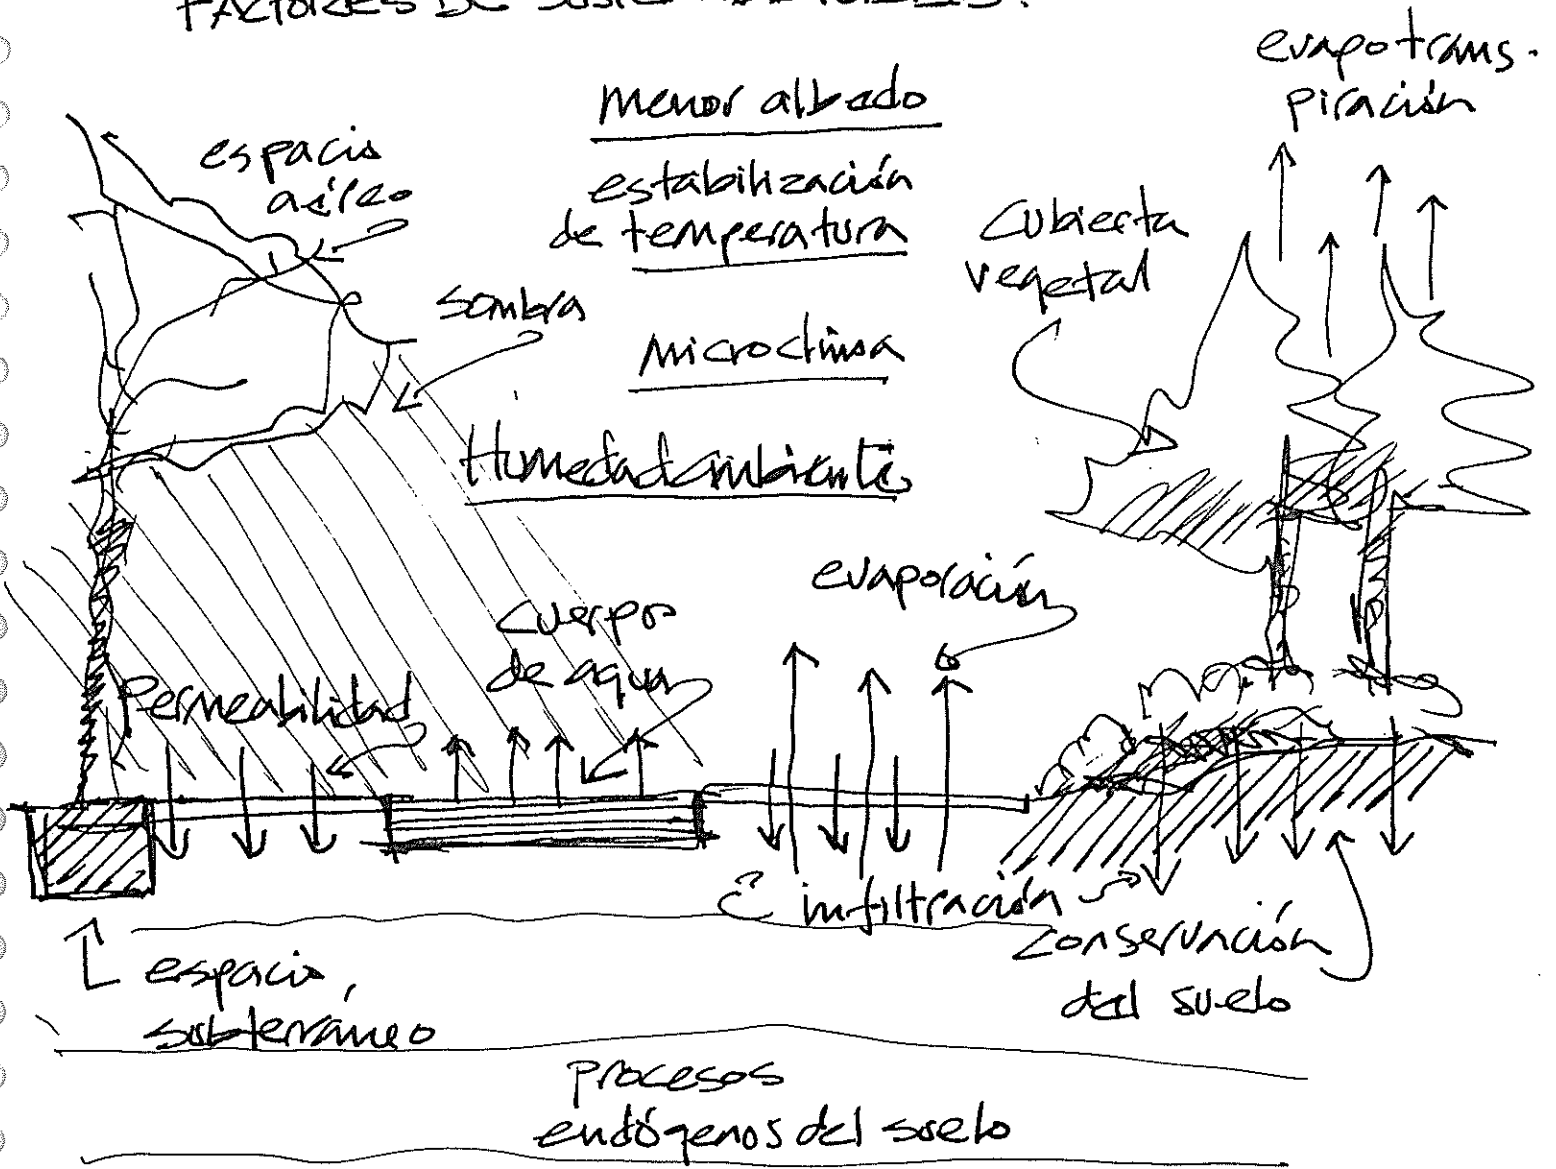 FACTORES DE
menor albedo
evapotrans-
piración
espacio
aéreo
estabilización
de temperatura
Cubierta
vegetal
sombra
Microclima
Humedad ambiente
evaporación
cuerpos
de agua
Permeabilidad
infiltración
conservación
del suelo
espacio
subterráneo
procesos
endógenos del suelo